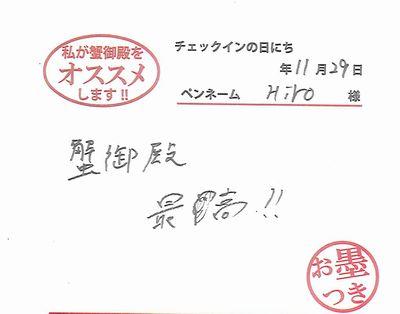 私が蟹御殿を
オススメ
します!!
チェックインの日にち
年11月29日
ペンネーム Hiro 様
蟹御殿
最高!!
お墨
つき